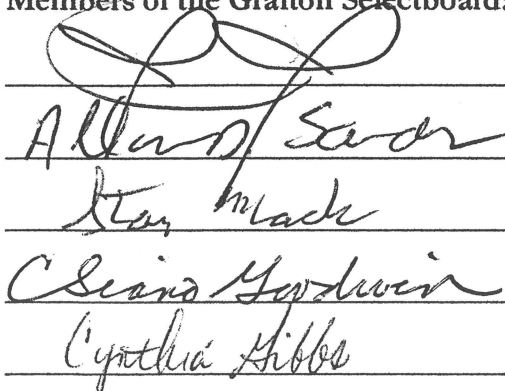 Members of the Grafton Selectboard:
Allan Sands
Stan Mack
Goodwin
Cynthia Gibbs